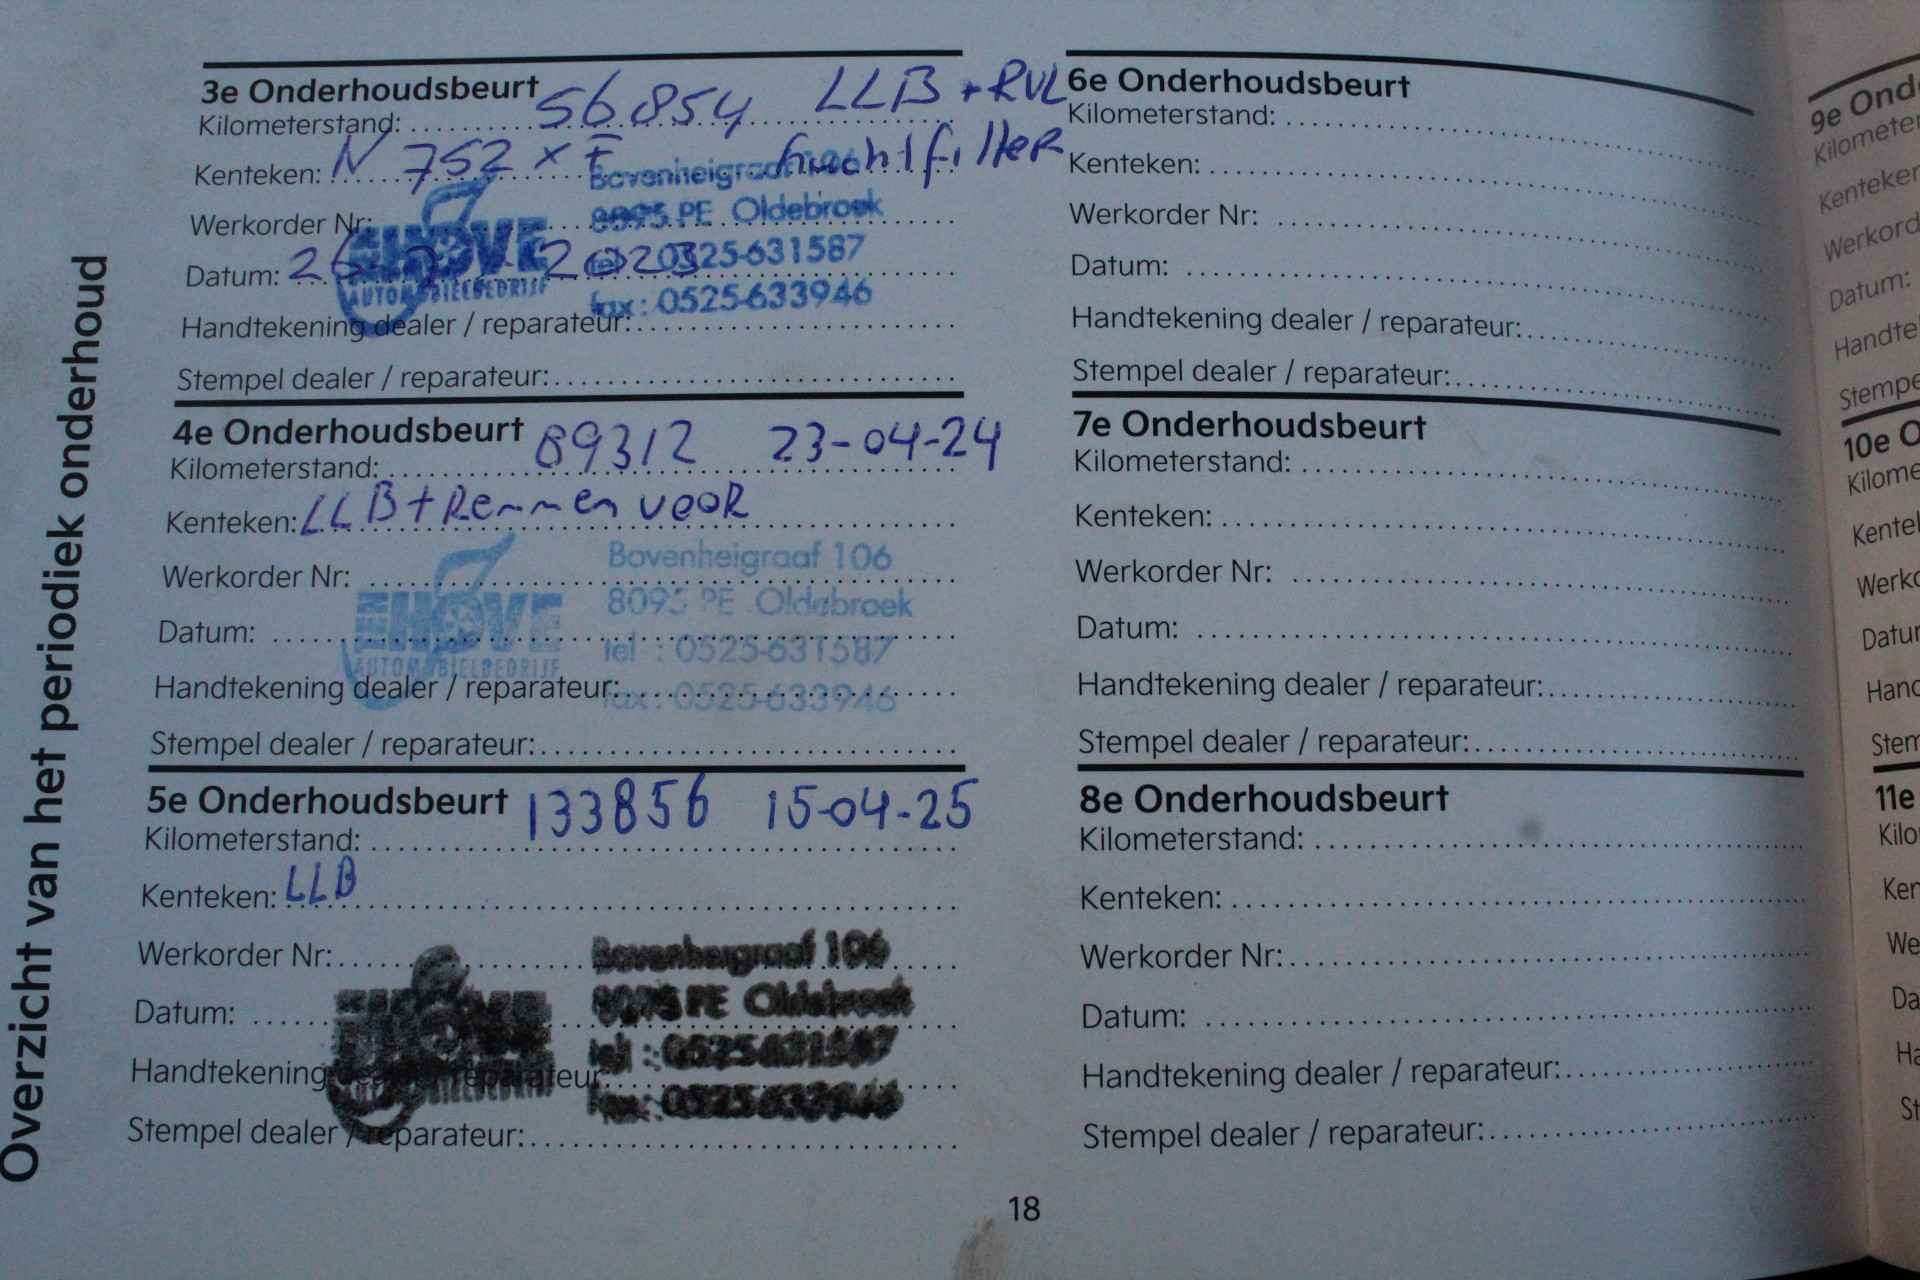 Overzicht van het periodiek onderhoud
3e Onderhoudsbeurt 56854 LLB + RVL
Kilometerstand:
Kenteken: N 752 X F luchtfilter
Bovenheigraaf 106
Werkorder Nr:
8095 PE Oldebroek
EHOVE
Datum: 26 2023
tel : 0525-631587
AUTOMOBIELBEDRIJF
fax : 0525-633946
Handtekening dealer / reparateur:
Stempel dealer / reparateur:
4e Onderhoudsbeurt 89312 23-04-24
Kilometerstand:
Kenteken: LLB + Remmen voor
Bovenheigraaf 106
Werkorder Nr:
8095 PE Oldebroek
EHOVE
Datum:
tel : 0525-631587
AUTOMOBIELBEDRIJF
Handtekening dealer / reparateur:
fax : 0525-633946
Stempel dealer / reparateur:
5e Onderhoudsbeurt 133856 15-04-25
Kilometerstand:
Kenteken: LLB
Werkorder Nr:
Bovenheigraaf 106
8095 PE Oldebroek
Datum:
tel : 0525-631587
Handtekening dealer / reparateur:
fax : 0525-633946
Stempel dealer / reparateur:
6e Onderhoudsbeurt
Kilometerstand:
Kenteken:
Werkorder Nr:
Datum:
Handtekening dealer / reparateur:
Stempel dealer / reparateur:
7e Onderhoudsbeurt
Kilometerstand:
Kenteken:
Werkorder Nr:
Datum:
Handtekening dealer / reparateur:
Stempel dealer / reparateur:
8e Onderhoudsbeurt
Kilometerstand:
Kenteken:
Werkorder Nr:
Datum:
Handtekening dealer / reparateur:
Stempel dealer / reparateur:
18
9e Ond
Kilometer
Kenteken
Werkord
Datum:
Handte
Stempe
10e O
Kilome
Kente
Werko
Datur
Hand
Stem
11e
Kilo
Ken
We
Da
Ha
St